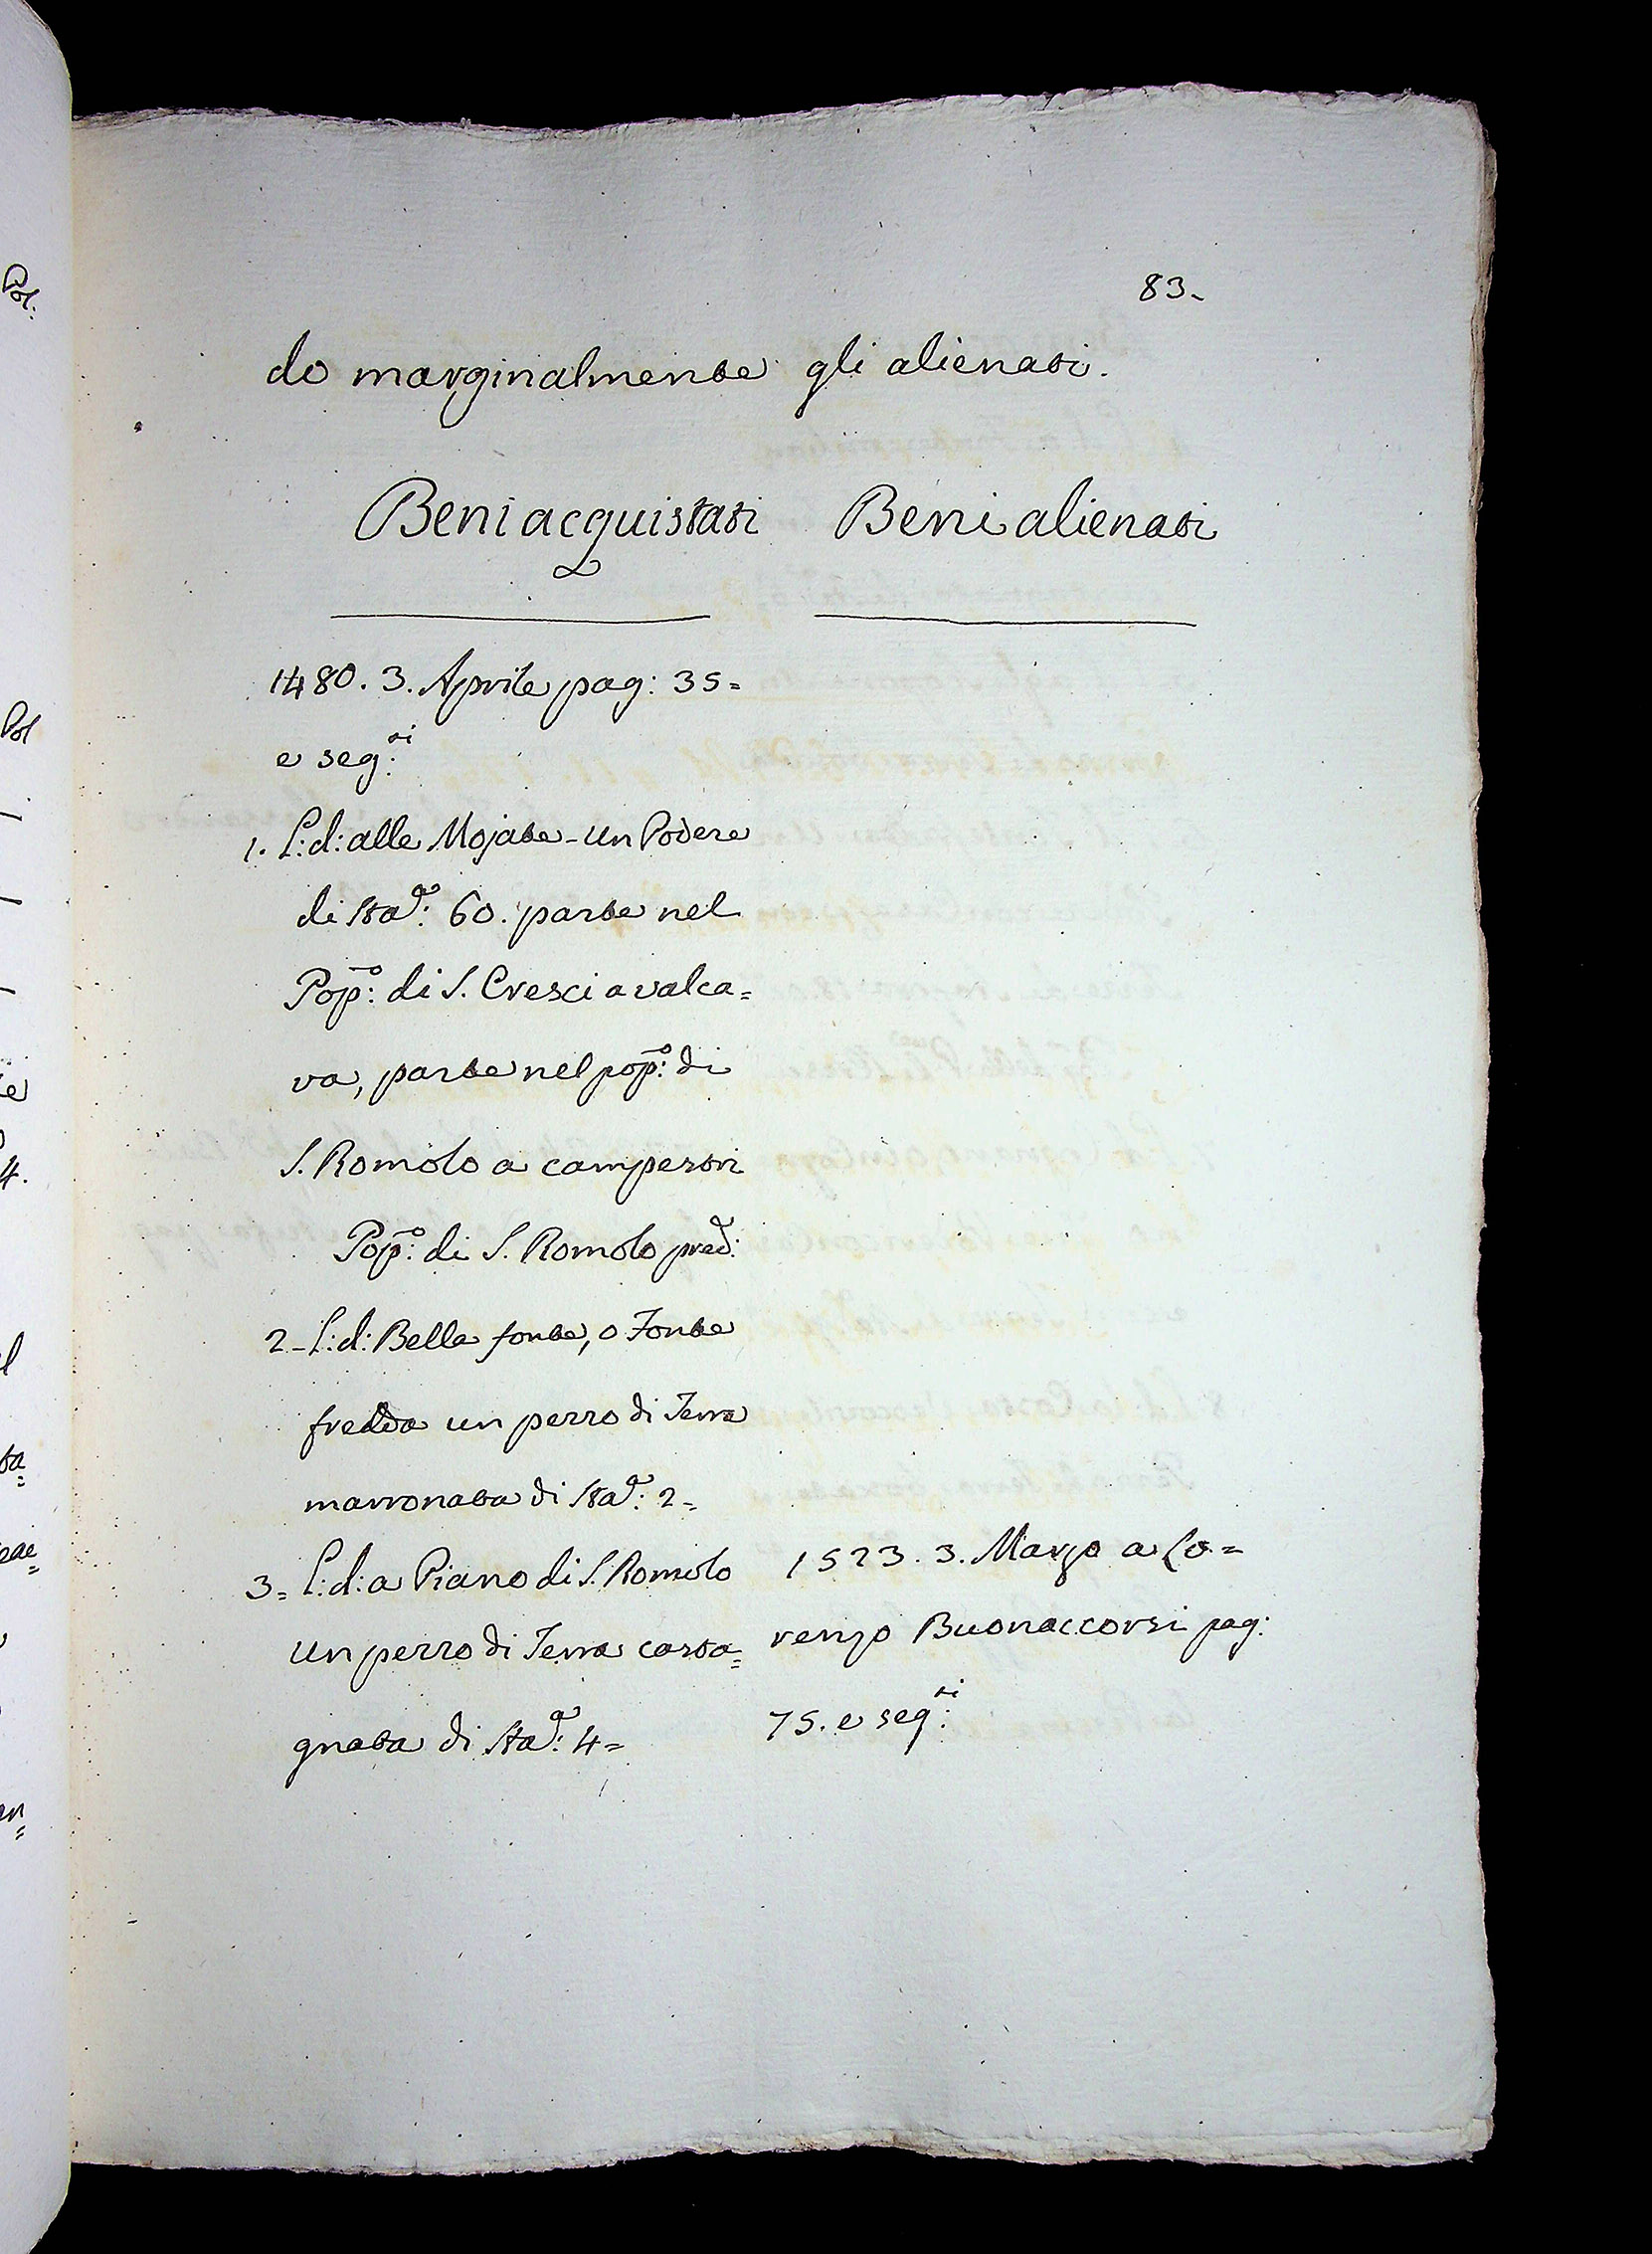 83.
do marginalmente gli alienati.
Beni acquistati
Beni alienati
1480. 3. Aprile pag: 35=
e seg:ti
1. L: d: alle Mojate - Un Podere
di Sta:a 60. parte nel
Pop:o di S. Cresci a valca=
va, parte nel pop:o di
S. Romolo a campestri
Pop:o di S. Romolo pred:o
2 - L: d: Bella fonte, o Fonte
fredda un pezzo di Terra
marronata di Sta:a 2=
3= L: d: a Piano di S. Romolo
Un pezzo di Terra casta=
gnata di Sta:a 4=
1523. 3. Marzo a Lo=
renzo Buonaccorsi pag:
75. e seg:ti